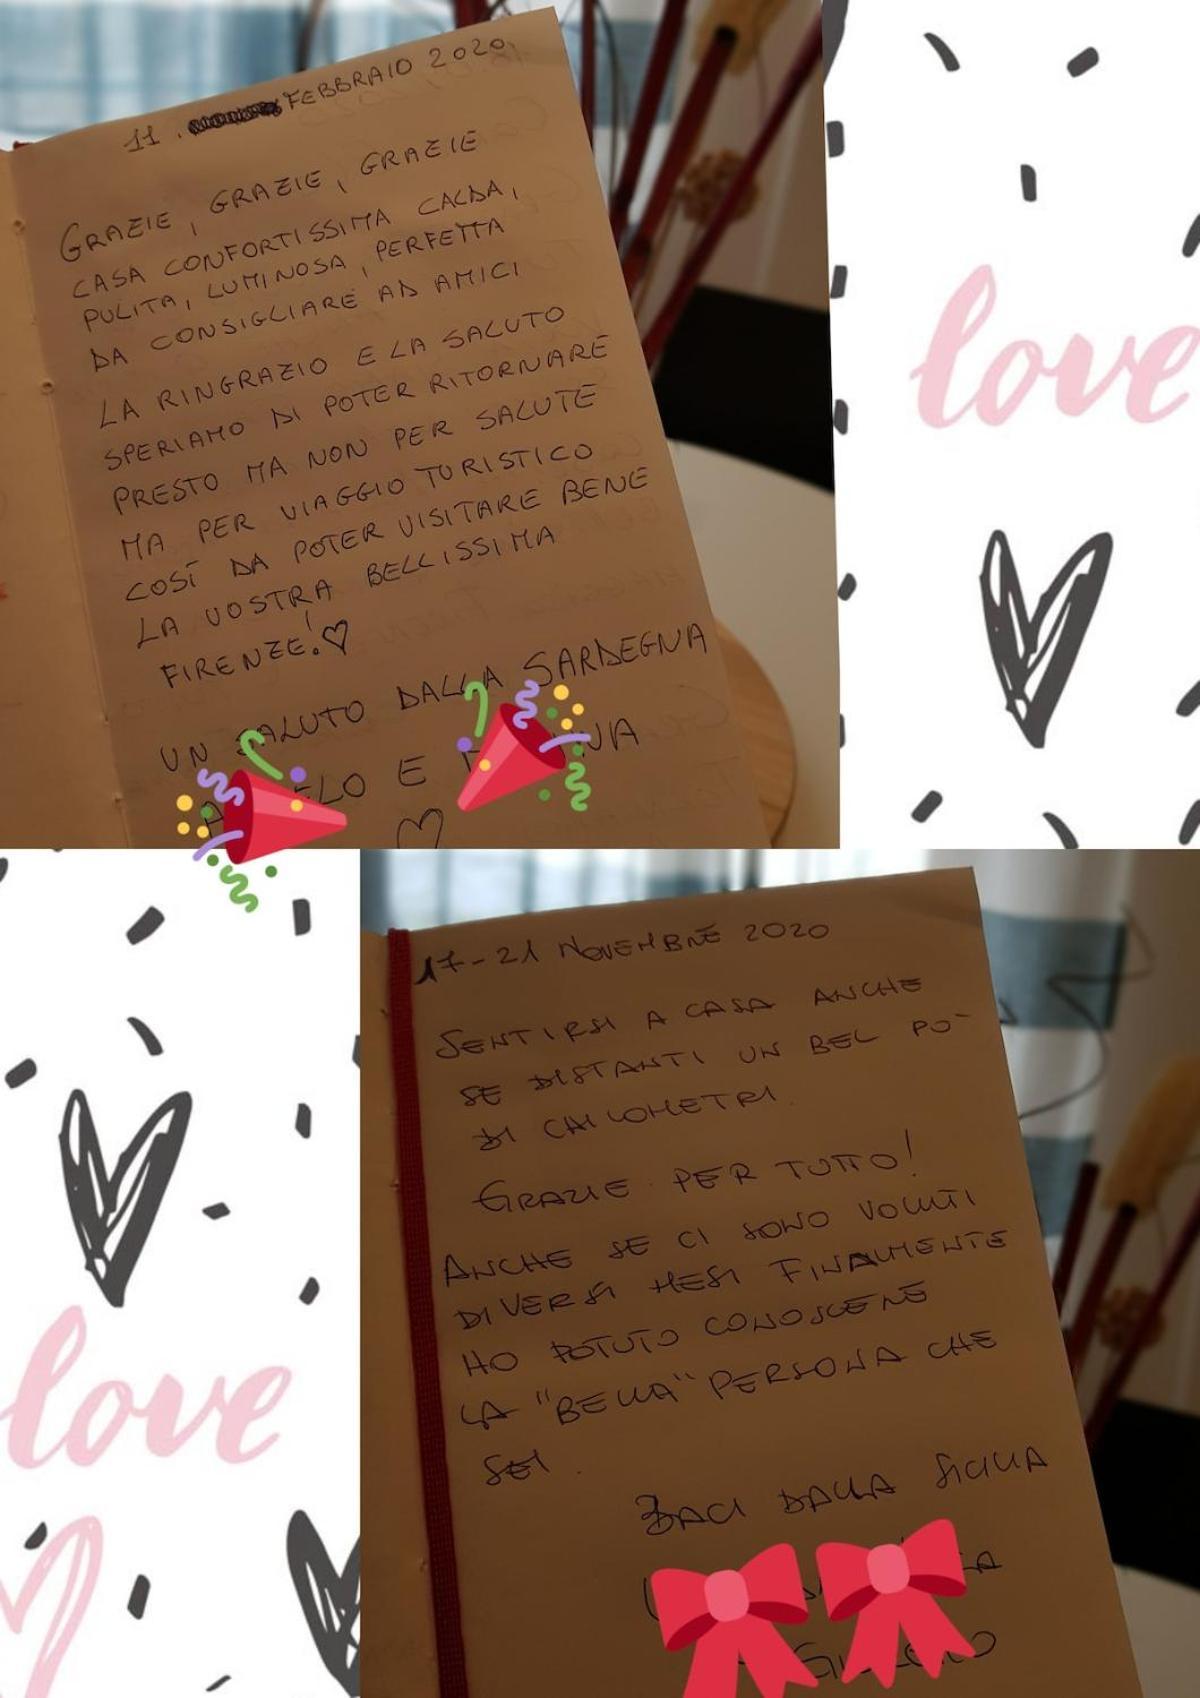 11. FEBBRAIO 2020
GRAZIE, GRAZIE, GRAZIE
CASA CONFORTISSIMA CALDA,
PULITA, LUMINOSA, PERFETTA
DA CONSIGLIARE AD AMICI
LA RINGRAZIO E LA SALUTO
SPERIAMO DI POTER RITORNARE
PRESTO MA NON PER SALUTE
MA PER VIAGGIO TURISTICO
COSÍ DA POTER VISITARE BENE
LA VOSTRA BELLISSIMA
FIRENZE!♡
UN SALUTO DALLA SARDEGNA
E
♡
love
17-21 NOVEMBRE 2020
SENTIRSI A CASA ANCHE
SE DISTANTI UN BEL PO'
DI CHILOMETRI.
GRAZIE PER TUTTO!
ANCHE SE CI SONO VOLUTI
DIVERSI MESI FINALMENTE
HO POTUTO CONOSCERE
LA "BELLA" PERSONA CHE
SEI.
BACI DALLA SICILIA
love